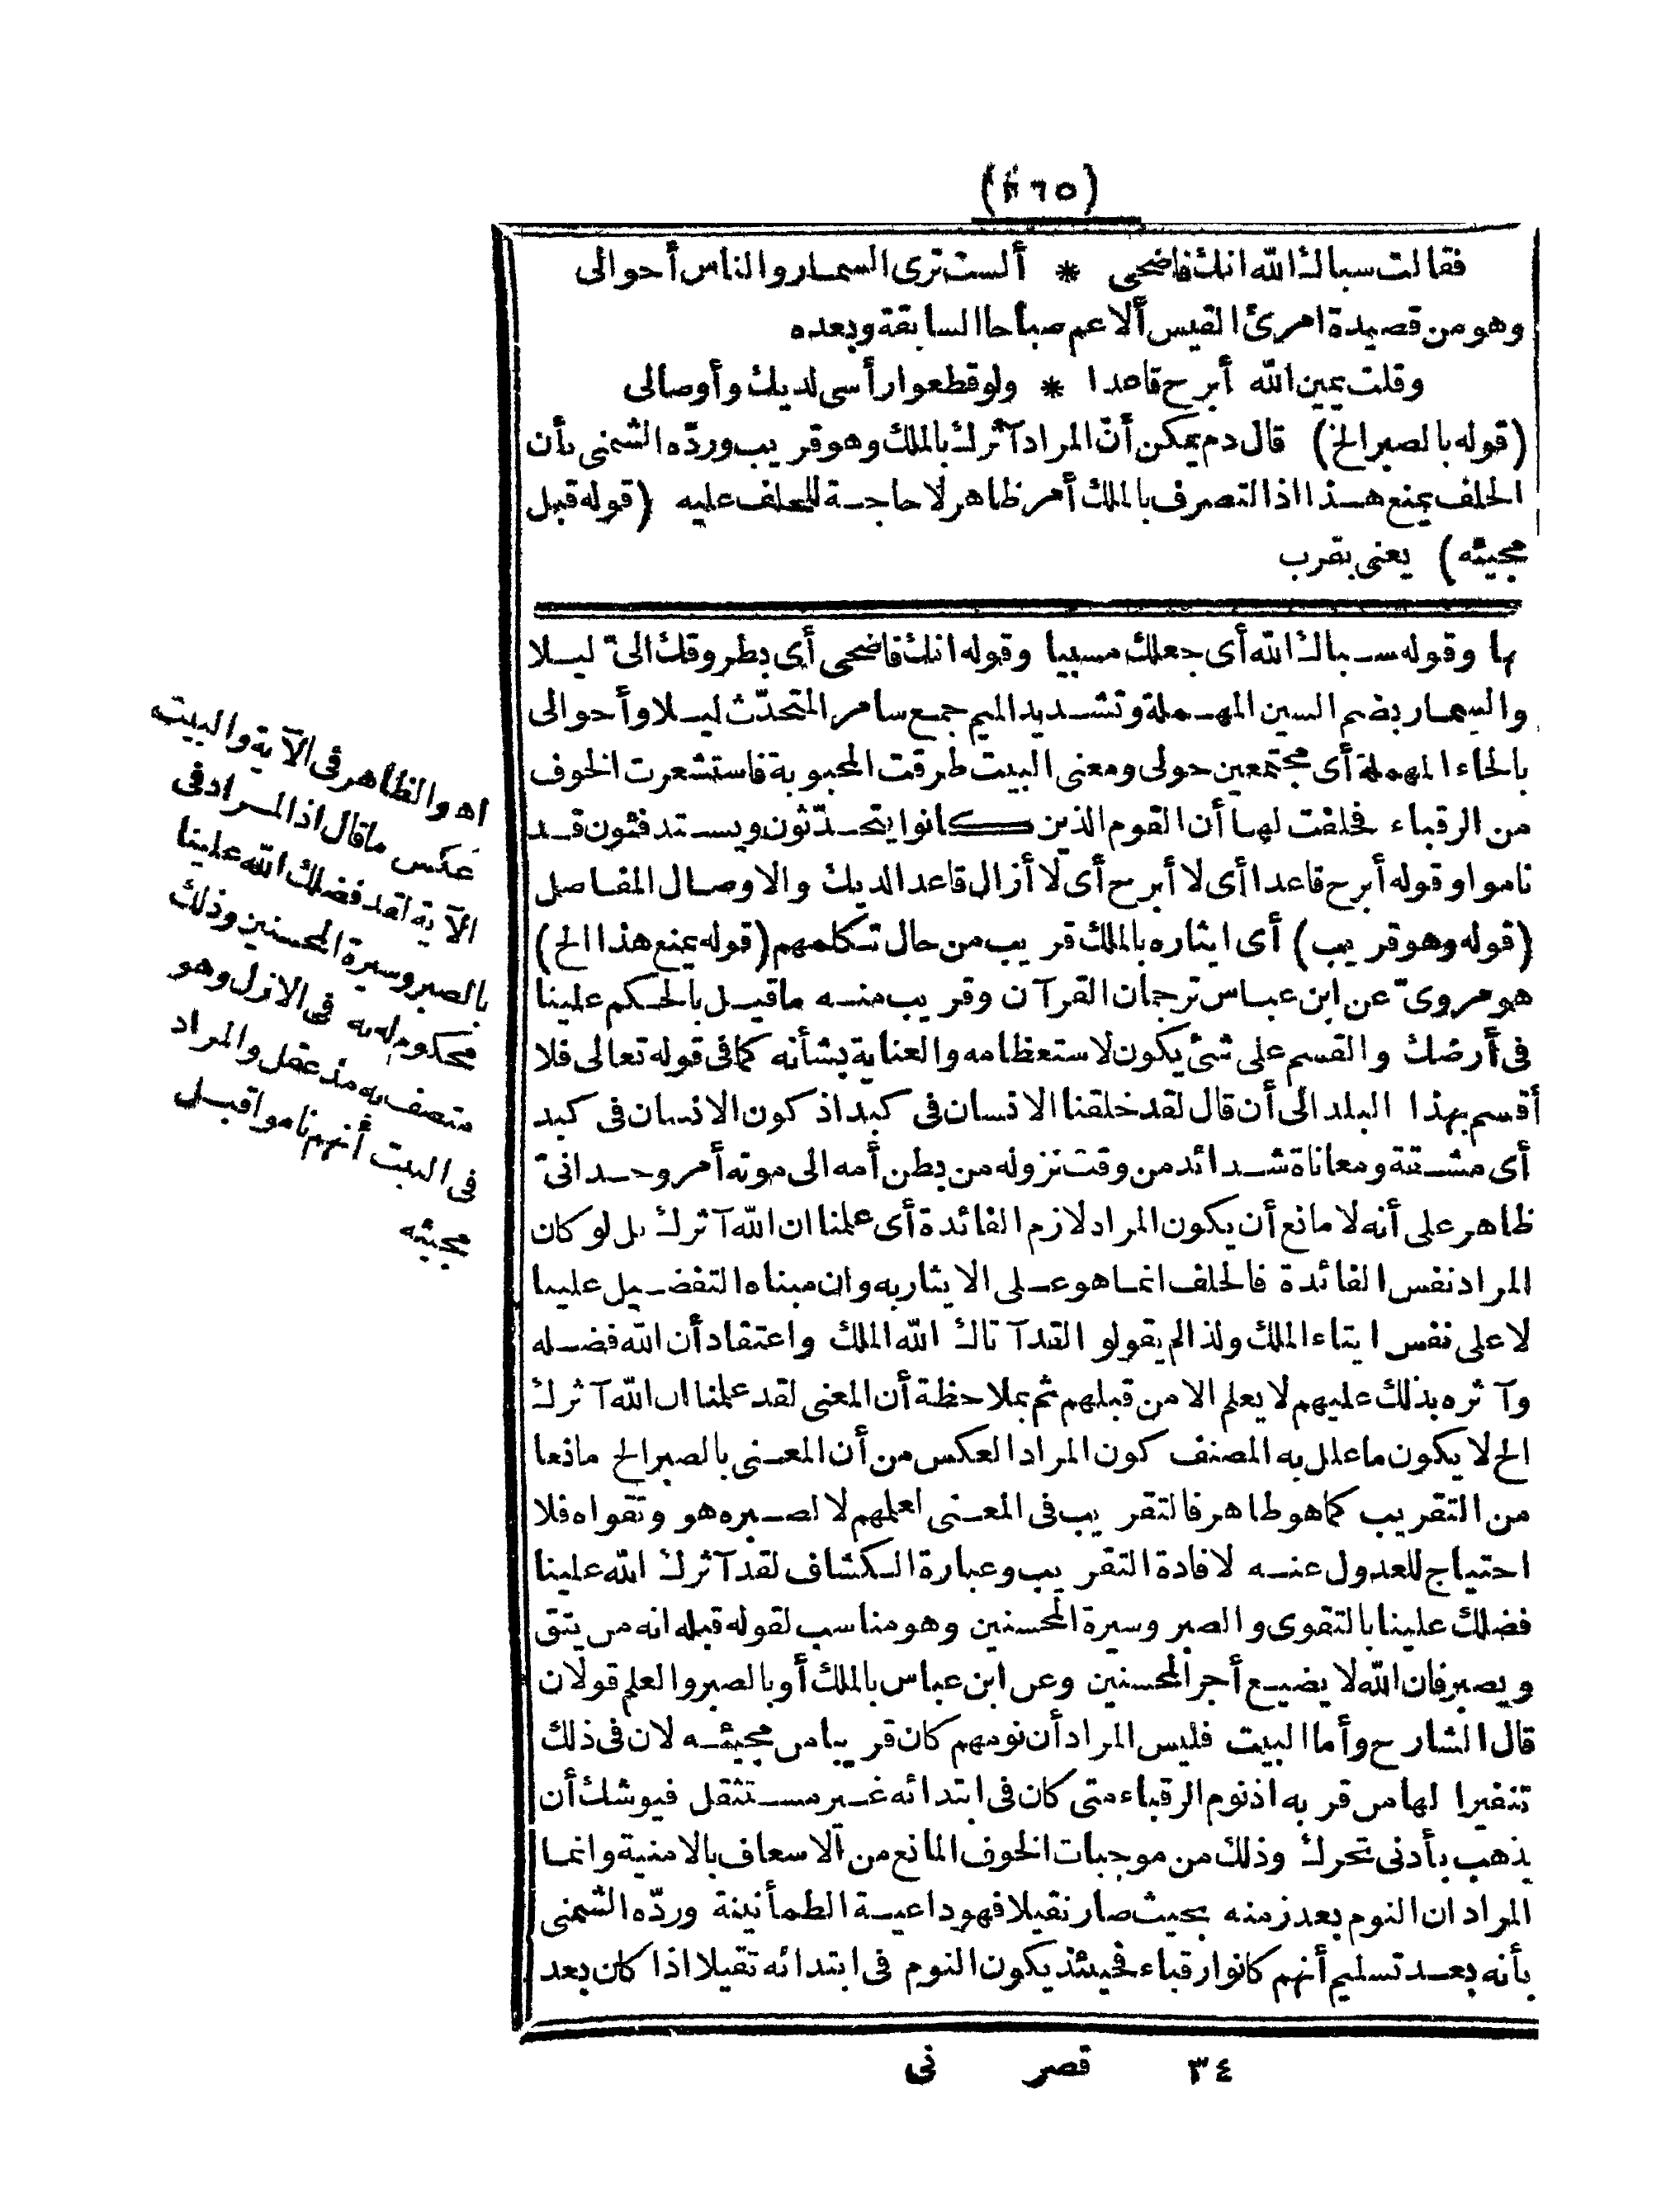 (٢٦٥)
فقالت سباك الله انك فاضحى * ألست ترى السمار والناس أحوالى
وهو من قصيدة امرئ القيس ألا عم صباحا السابقة وبعده
وقلت يمين الله أبرح قاعدا * ولو قطعوا رأسى لديك وأوصالى
(قوله بالصبر الخ) قال دم يمكن أنّ المراد آثرك بالملك وهو قريب وردّه الشمنى بأن
الحلف يمنع هذا اذ التصرف بالملك أمر ظاهر لا حاجة للحلف عليه (قوله قبل
مجيئه) يعنى بقرب
ها وقوله سباك الله أى جعلك مسبيا وقوله انك فاضحى أى بطروقك الىّ ليلا
والسمار بضم السين المهملة وتشديد الميم جمع سامر المتحدّث ليلا وأحوالى
بالحاء المهملة أى مجتمعين حولى ومعنى البيت طرقت المحبوبة فاستشعرت الخوف
من الرقباء فحلفت لها أن القوم الذين كانوا يتحدّثون ويستدفئون قد
ناموا وقوله أبرح قاعدا أى لا أبرح أى لا أزال قاعدا لديك والاوصال المفاصل
(قوله وهو قريب) أى ايثاره بالملك قريب من حال تكلمهم (قوله يمنع هذا الخ)
هو مروىّ عن ابن عباس ترجمان القرآن وقريب منه ما قيل بالحكم علينا
فى أرضك والقسم على شئ يكون لاستعظامه والعناية بشأنه كما فى قوله تعالى فلا
أقسم بهذا البلد الى أن قال لقد خلقنا الانسان فى كبد اذ كون الانسان فى كبد
أى مشقة ومعاناة شدائد من وقت نزوله من بطن أمه الى موته أمر وحدانىّ
ظاهر على أنه لا مانع أن يكون المراد لازم الفائدة أى علمنا ان الله آثرك بل لو كان
المراد نفس الفائدة فالحلف انما هو على الايثار به وان مبناه التفضيل علينا
لا على نفس ايتاء الملك ولذا لم يقولو القد آتاك الله الملك واعتقاد أن الله فضله
وآثره بذلك عليهم لا يعلم الا من قبلهم ثم بملاحظة أن المعنى لقد علمنا ان الله آثرك
الخ لا يكون ما علل به المصنف كون المراد العكس من أن المعنى بالصبر الخ مانعا
من التقريب كما هو ظاهر فالتقريب فى المعنى لعلمهم لا لصبره هو وتقواه فلا
احتياج للعدول عنه لافادة التقريب وعبارة الكشاف لقد آثرك الله علينا
فضلك علينا بالتقوى والصبر وسيرة المحسنين وهو مناسب لقوله قبله انه من يتق
ويصبر فان الله لا يضيع أجر المحسنين وعن ابن عباس بالملك أو بالصبر والعلم قولان
قال الشارح وأما البيت فليس المراد أن نومهم كان قريبا من مجيئه لان فى ذلك
تنفيرا لها من قربه اذ نوم الرقباء متى كان فى ابتدائه غير مستثقل فيوشك أن
يذهب بأدنى تحرك وذلك من موجبات الخوف المانع من الاسعاف بالامنية وانما
المراد ان النوم بعد زمنه بحيث صار ثقيلا فهو داعية الطمأنينة وردّه الشمنى
بأنه بعد تسليم أنهم كانوا رقباء فحينئذ يكون النوم فى ابتدائه ثقيلا اذا كان بعد
اه والظاهر فى الآية والبيت
عكس ما قال اذ المراد فى
الآية لقد فضلك الله علينا
بالصبر وسيرة المحسنين وذلك
محكوم له به فى الازل وهو
متصف به مذ عقل والمراد
فى البيت أنهم ناموا قبل
مجيئه
٣٤ قصر نى